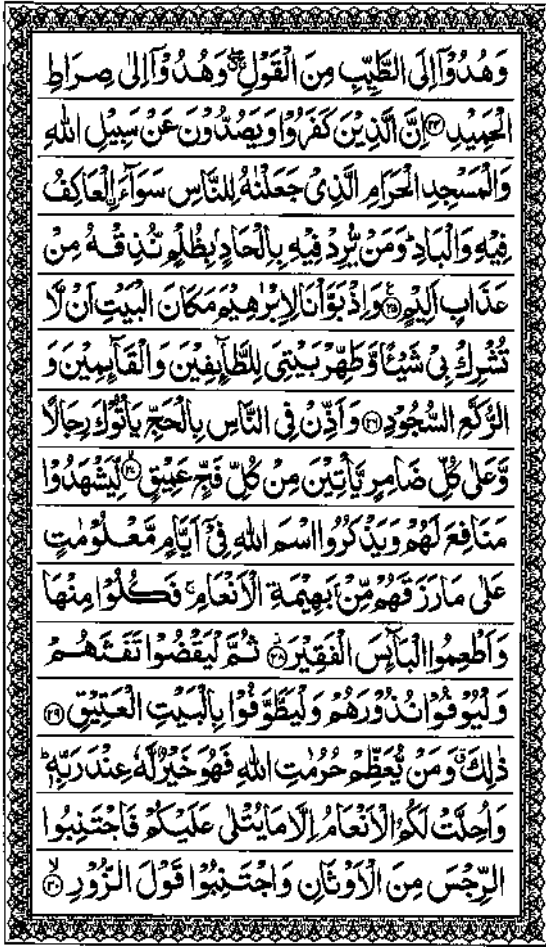 وَهُدُوْۤا اِلَى الطَّيِّبِ مِنَ الْقَوْلِ ۚۖ وَهُدُوْۤا اِلٰى صِرَاطِ
الْحَمِيْدِ ﴿۲۴﴾ اِنَّ الَّذِيْنَ كَفَرُوْا وَيَصُدُّوْنَ عَنْ سَبِيْلِ اللّٰهِ
وَالْمَسْجِدِ الْحَرَامِ الَّذِيْ جَعَلْنٰهُ لِلنَّاسِ سَوَآءَ ِ۟الْعَاكِفُ
فِيْهِ وَالْبَادِ ؕ وَمَنْ يُّرِدْ فِيْهِ بِاِلْحَادٍۭ بِظُلْمٍ نُّذِقْهُ مِنْ
عَذَابٍ اَلِيْمٍ ﴿۲۵﴾ ع وَاِذْ بَوَّاْنَا لِاِبْرٰهِيْمَ مَكَانَ الْبَيْتِ اَنْ لَّا
تُشْرِكْ بِيْ شَيْـًٔا وَّطَهِّرْ بَيْتِيَ لِلطَّآئِفِيْنَ وَالْقَآئِمِيْنَ وَ
الرُّكَّعِ السُّجُوْدِ ﴿۲۶﴾ وَاَذِّنْ فِي النَّاسِ بِالْحَجِّ يَاْتُوْكَ رِجَالًا
وَّعَلٰى كُلِّ ضَامِرٍ يَّاْتِيْنَ مِنْ كُلِّ فَجٍّ عَمِيْقٍ ﴿۲۷﴾ ۙ لِّيَشْهَدُوْا
مَنَافِعَ لَهُمْ وَيَذْكُرُوا اسْمَ اللّٰهِ فِيْۤ اَيَّامٍ مَّعْلُوْمٰتٍ
عَلٰى مَا رَزَقَهُمْ مِّنْۢ بَهِيْمَةِ الْاَنْعَامِ ۚ فَكُلُوْا مِنْهَا
وَاَطْعِمُوا الْبَآئِسَ الْفَقِيْرَ ﴿۲۸﴾ ثُمَّ لْيَقْضُوْا تَفَثَهُمْ
وَلْيُوْفُوْا نُذُوْرَهُمْ وَلْيَطَّوَّفُوْا بِالْبَيْتِ الْعَتِيْقِ ﴿۲۹﴾
ذٰلِكَ ۗ وَمَنْ يُّعَظِّمْ حُرُمٰتِ اللّٰهِ فَهُوَ خَيْرٌ لَّهٗ عِنْدَ رَبِّهٖ ؕ
وَاُحِلَّتْ لَكُمُ الْاَنْعَامُ اِلَّا مَا يُتْلٰى عَلَيْكُمْ فَاجْتَنِبُوا
الرِّجْسَ مِنَ الْاَوْثَانِ وَاجْتَنِبُوْا قَوْلَ الزُّوْرِ ﴿۳۰﴾ ۙ